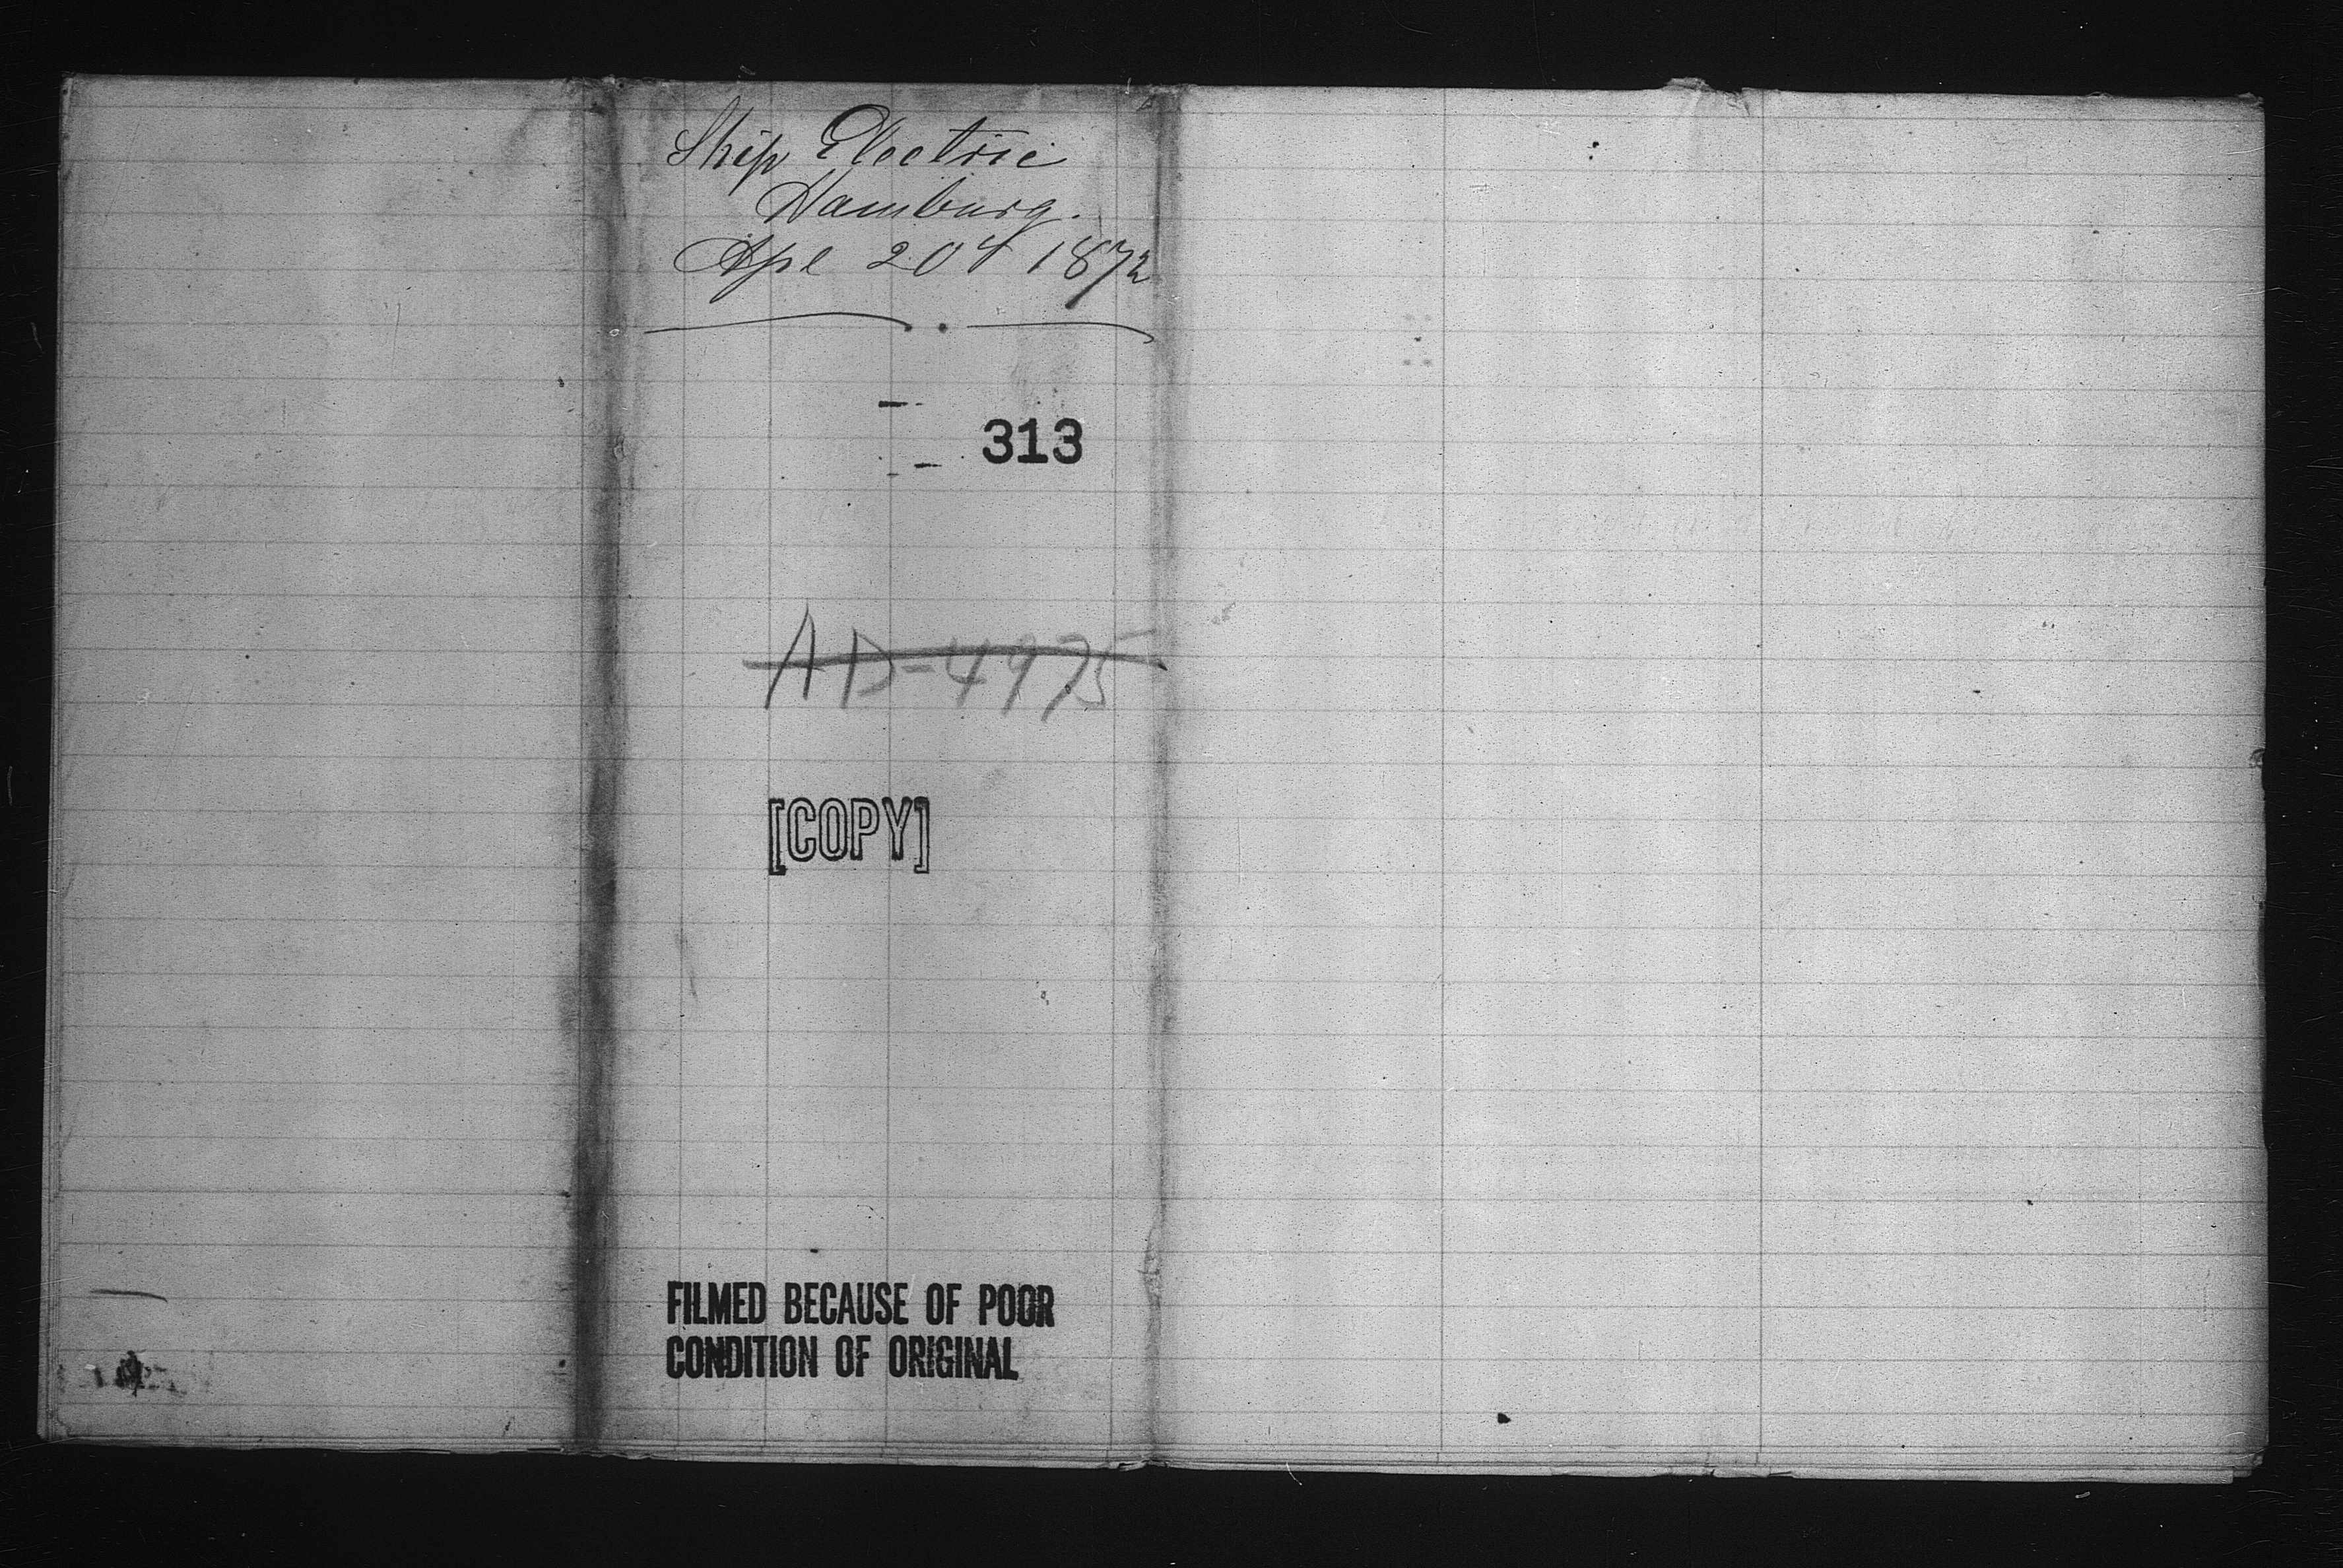 Ship Electric
Hamburg.
Apl 20th 1872
313
AD-4975
[COPY]
FILMED BECAUSE OF POOR
CONDITION OF ORIGINAL